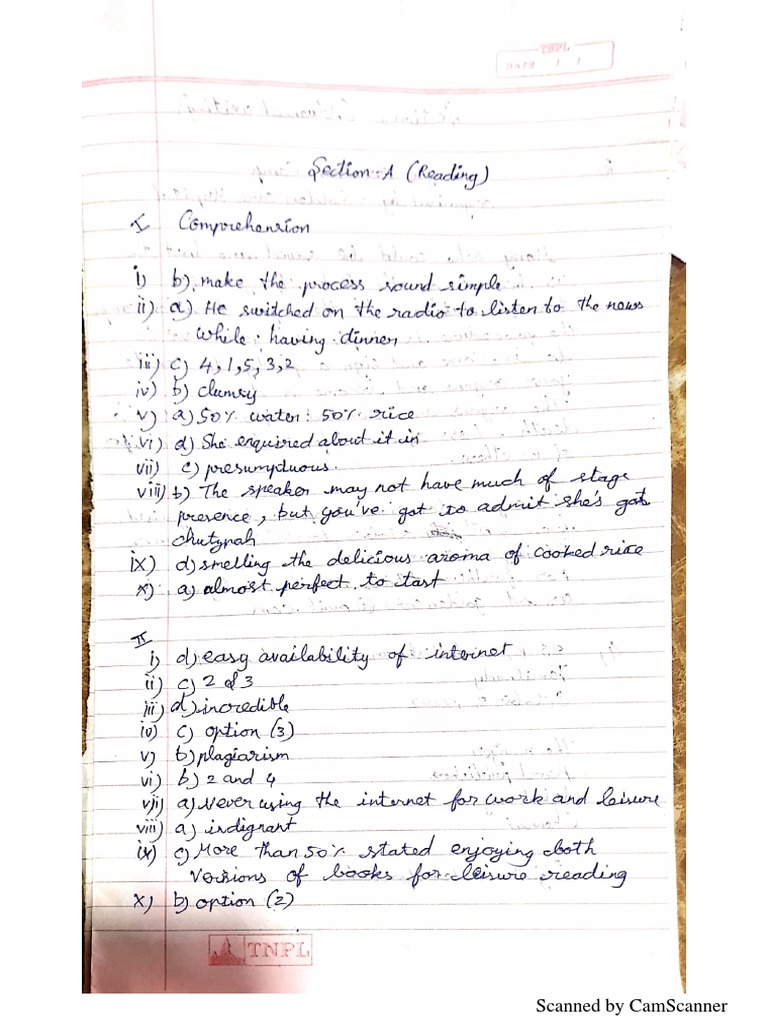 TNPL
DATE / /
Section-A (Reading)
I Comprehension
i) b) make the process sound simple
ii) a) He switched on the radio to listen to the news
while having dinner
iii) c) 4, 1, 5, 3, 2
iv) b) clumsy
v) a) 50% water: 50% rice
vi) d) She enquired about it in
vii) c) presumptuous.
viii) b) The speaker may not have much of stage
presence, but you've got to admit she's got
chutzpah
ix) d) smelling the delicious aroma of cooked rice
x) a) almost perfect to tast
II
i) d) easy availability of internet
ii) c) 2 & 3
iii) d) incredible
iv) c) option (3)
v) b) plagiarism
vi) b) 2 and 4
vii) a) Never using the internet for work and leisure
viii) a) indignant
ix) c) More than 50% stated enjoying both
versions of books for leisure reading
x) b) option (2)
TNPL
Scanned by CamScanner